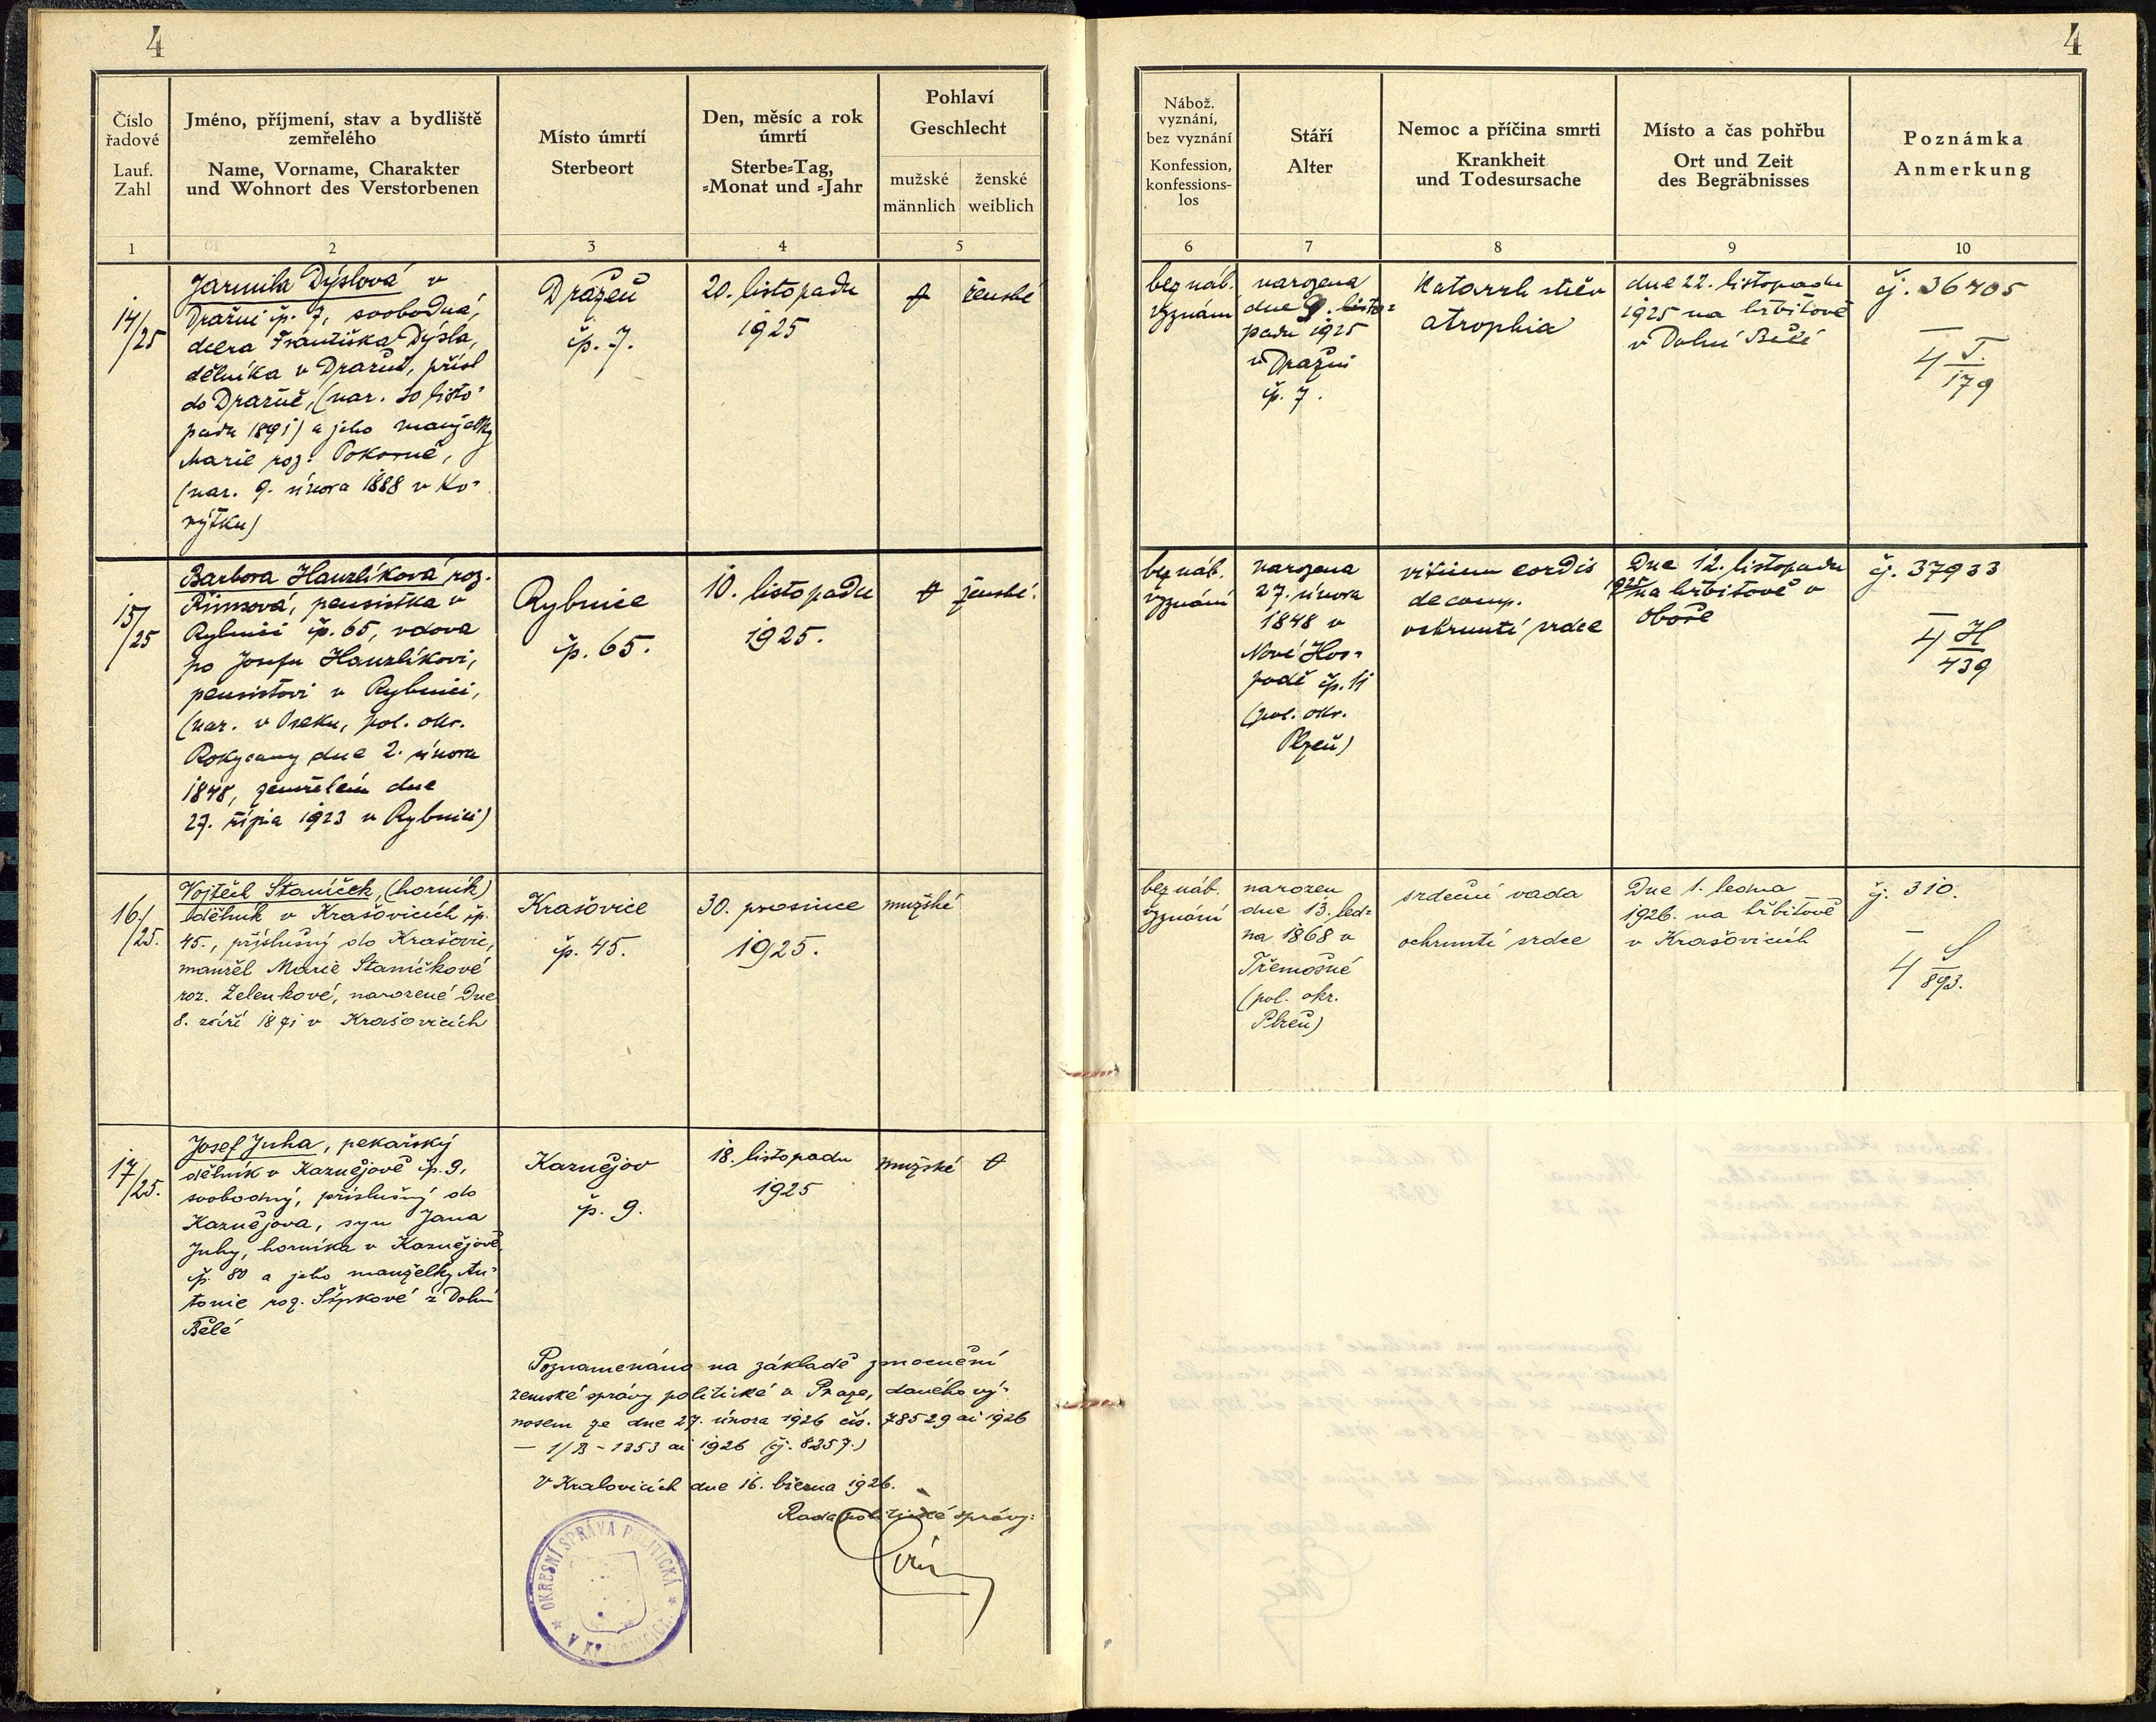 4
Číslo
řadové
Lauf.
Zahl
Jméno, příjmení, stav a bydliště
zemřelého
Name, Vorname, Charakter
und Wohnort des Verstorbenen
Místo úmrtí
Sterbeort
Den, měsíc a rok
úmrtí
Sterbe=Tag,
=Monat und =Jahr
Pohlaví
Geschlecht
mužské
männlich
ženské
weiblich
1
2
3
4
5
14/25
Jarmila Dýslová v
Dražni čp. 7, svobodná,
dcera Františka Dýsla,
dělníka v Dražni, přísl
do Dražně, (nar. 30 listo=
padu 1891) a jeho manželky
Marie roz. Pokorné,
(nar. 9. února 1888 v Ko=
rýtku)
Dražeň
čp. 7.
20. listopadu
1925
ženské
15/25
Barbora Hanzlíková roz.
pensistka v
Rybnici čp. 65, vdova
po Josefu Hanzlíkovi,
pensistovi v Rybnici,
(nar. v Oseku, pol. okr.
Rokycany dne 2. února
1848, zemřelém dne
27. října 1923 v Rybnici)
Rybnice
čp. 65.
10. listopadu
1925.
ženské.
16./25.
Vojtěch Staníček, (horník)
dělník v Krašovicích čp.
45., příslušný do Krašovic,
manžel Marie Staníčkové
roz. Zelenkové, narozené Dne
8. září 1871 v Krašovicích
Krašovice
čp. 45.
30. prosince
1925.
mužské
17/25.
Josef Juha, pekařský
dělník v Kaznějově čp. 9,
svobodný, příslušný do
Kaznějova, syn Jana
Juhy, horníka v Kaznějově
čp. 80 a jeho manželky An=
tonie roz. Šípkové z Dolní
Bělé
Kaznějov
čp. 9.
18. listopadu
1925
mužské
Poznamenáno na základě zmocnění
zemské správy politické v Praze, daného vý=
nosem ze dne 27. února 1926 čís. 78529 ai 1926
— 1/B - 1353 ai 1926 (čj. 8257.)
V Kralovicích dne 16. března 1926.
Rada politické správy:
OKRESNÍ SPRÁVA POLITICKÁ
4
Nábož.
vyznání,
bez vyznání
Konfession,
konfessions-
los
Stáří
Alter
Nemoc a příčina smrti
Krankheit
und Todesursache
Místo a čas pohřbu
Ort und Zeit
des Begräbnisses
Poznámka
Anmerkung
6
7
8
9
10
bez náb.
vyznání
narozena
dne 9. listo=
padu 1925
v Dražni
čp. 7.
Katarrh střev
atrophia
dne 22. listopadu
1925 na hřbitově
v Dolní Bělé
čj. 36405
179
bez náb.
vyznání
narozena
27. února
1848 v
Nové Hos=
podě čp. 11
(pol. okr.
Plzeň)
vitium cordis
decomp.
ochrnutí srdce
Dne 12. listopadu
1925 na hřbitově v
Oboře
čj. 37933
H
439
bez náb.
vyznání
narozen
dne 13. led=
na 1868 v
Třemošné
(pol. okr.
Plzeň)
srdeční vada
ochrnutí srdce
Dne 1. ledna
1926. na hřbitově
v Krašovicích
čj. 310.
S
893.